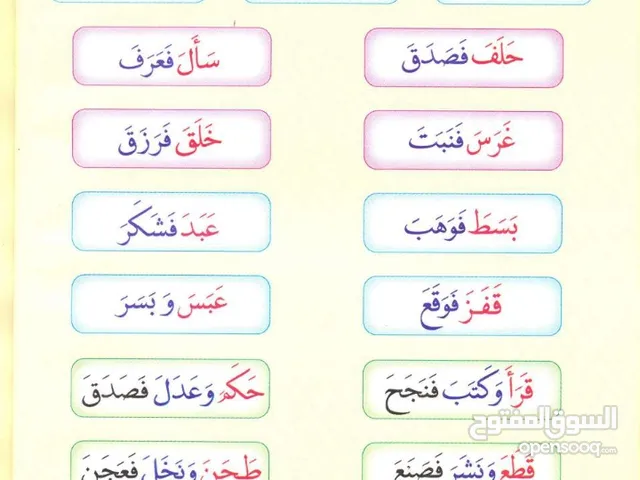 حَلَفَ فَصَدَقَ
سَأَلَ فَعَرَفَ
غَرَسَ فَنَبَتَ
خَلَقَ فَرَزَقَ
بَسَطَ فَوَهَبَ
عَبَدَ فَشَكَرَ
قَفَزَ فَوَقَعَ
عَبَسَ وَ بَسَرَ
قَرَأَ وَكَتَبَ فَنَجَحَ
حَكَمَ وَعَدَلَ فَصَدَقَ
قَطَعَ وَنَشَرَ فَصَنَعَ
طَحَنَ وَنَخَلَ فَعَجَنَ
السوق المفتوح
opensooq.com